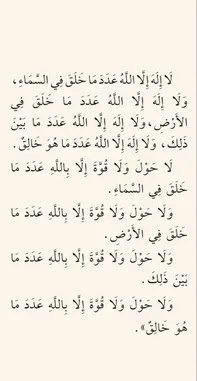 لَا إِلَهَ إِلَّا اللَّهُ عَدَدَ مَا خَلَقَ فِي السَّمَاءِ،
وَلَا إِلَهَ إِلَّا اللَّهُ عَدَدَ مَا خَلَقَ فِي
الأَرْضِ، وَلَا إِلَهَ إِلَّا اللَّهُ عَدَدَ مَا بَيْنَ
ذَلِكَ، وَلَا إِلَهَ إِلَّا اللَّهُ عَدَدَ مَا هُوَ خَالِقٌ.
لَا حَوْلَ وَلَا قُوَّةَ إِلَّا بِاللَّهِ عَدَدَ مَا
خَلَقَ فِي السَّمَاءِ.
وَلَا حَوْلَ وَلَا قُوَّةَ إِلَّا بِاللَّهِ عَدَدَ مَا
خَلَقَ فِي الأَرْضِ.
وَلَا حَوْلَ وَلَا قُوَّةَ إِلَّا بِاللَّهِ عَدَدَ مَا
بَيْنَ ذَلِكَ.
وَلَا حَوْلَ وَلَا قُوَّةَ إِلَّا بِاللَّهِ عَدَدَ مَا
هُوَ خَالِقٌ».